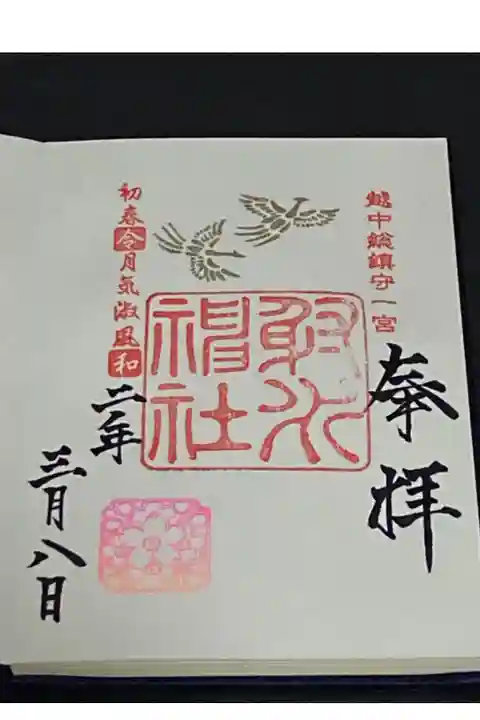 越中総鎮守一宮
奉拝
射水
神社
初春令月気淑風和
二年
三月八日